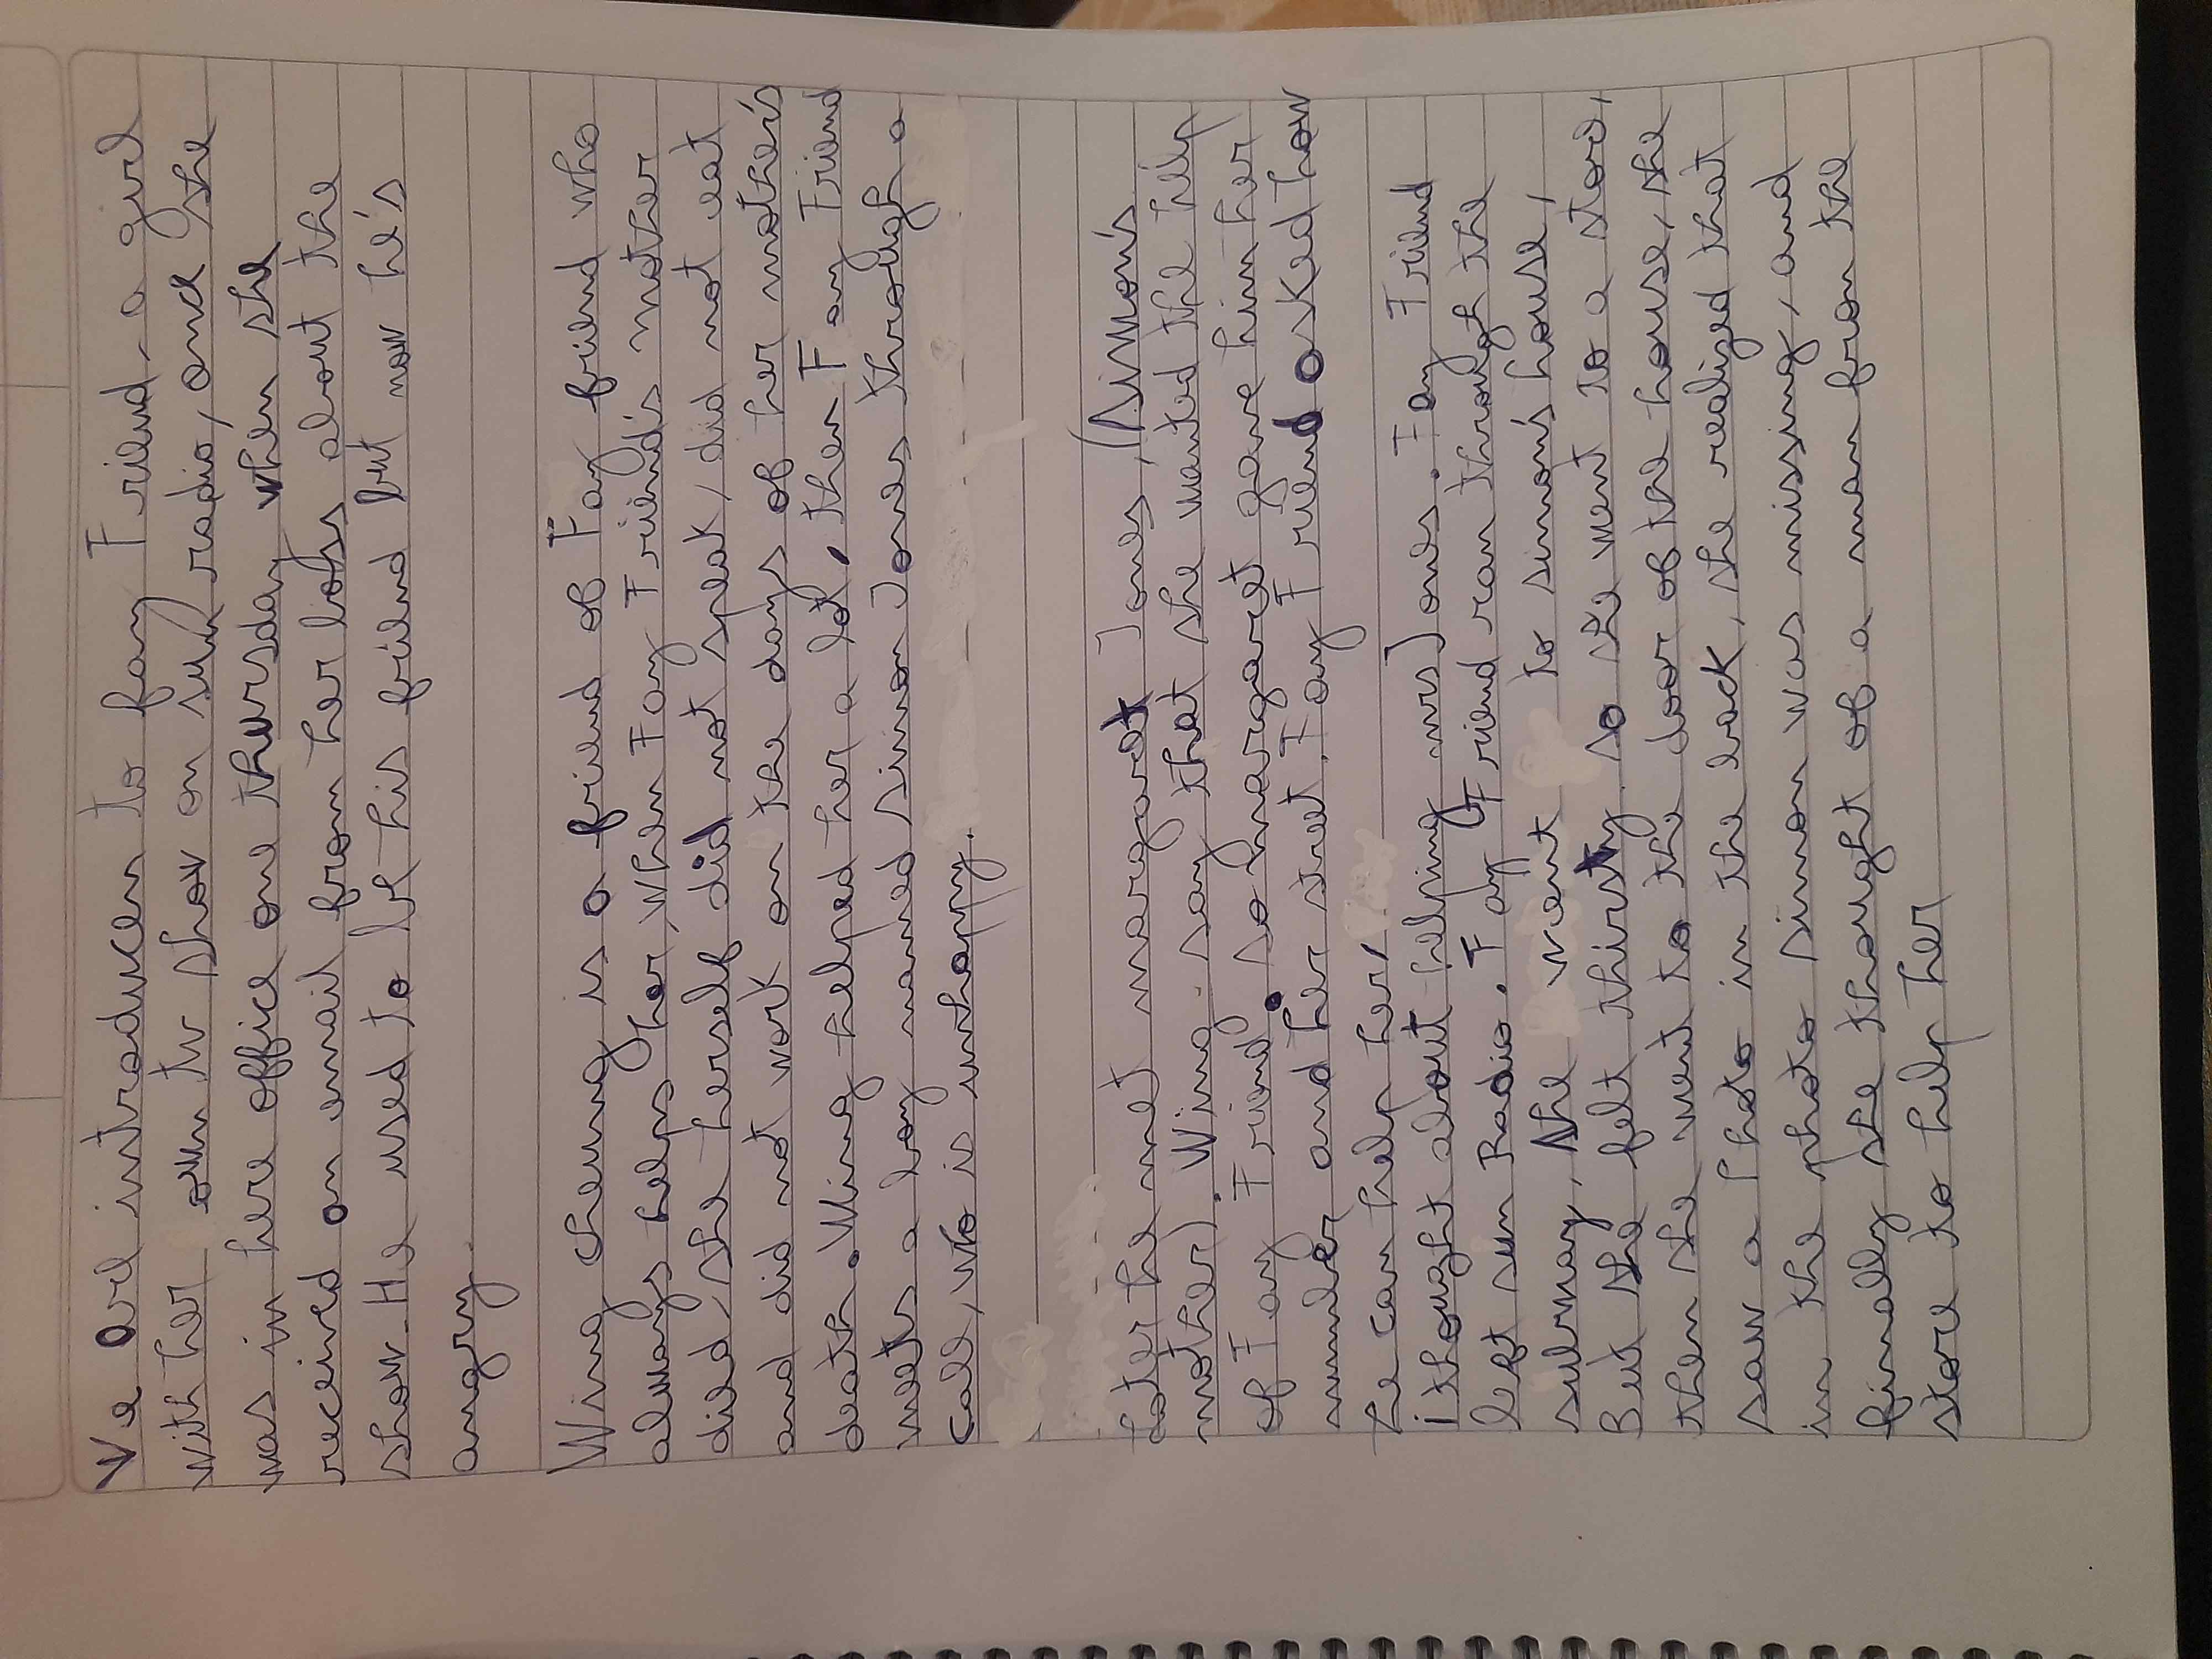 We are introduces to fay Friend, a girl
with her own tv show on sun radio, and she
was in here office one thursday when she
received an email from her lio about the
show. He used to be his friend but now he's
angry.
Wing cheung is a friend of Fay friend who
always helps her, when Fay Friend's mother
died, she herself did not speak, did not eat
and did not work on the days of her mother's
death. Wing helped her a lot, then Fay Friend
meets a boy named Simon Jones through a
Call, who is unhappy.
later he met margaret Jones, (Simon's
mother). Wing say that she wanted the help
of Fay Friend. so margaret gave him her
number and her street, Fay Friend asked how
he can help her,
i thought about helping mrs Jones. Fay Friend
left sun Radio. Fay Friend ran throgh the
subway, she went to simon's house,
But she felt thirsty. so she went to a store,
then she went to the door of the house, she
saw a photo in the back, she realized that
in the photo simon was missing, and
finally she thought of a man from the
store to help her